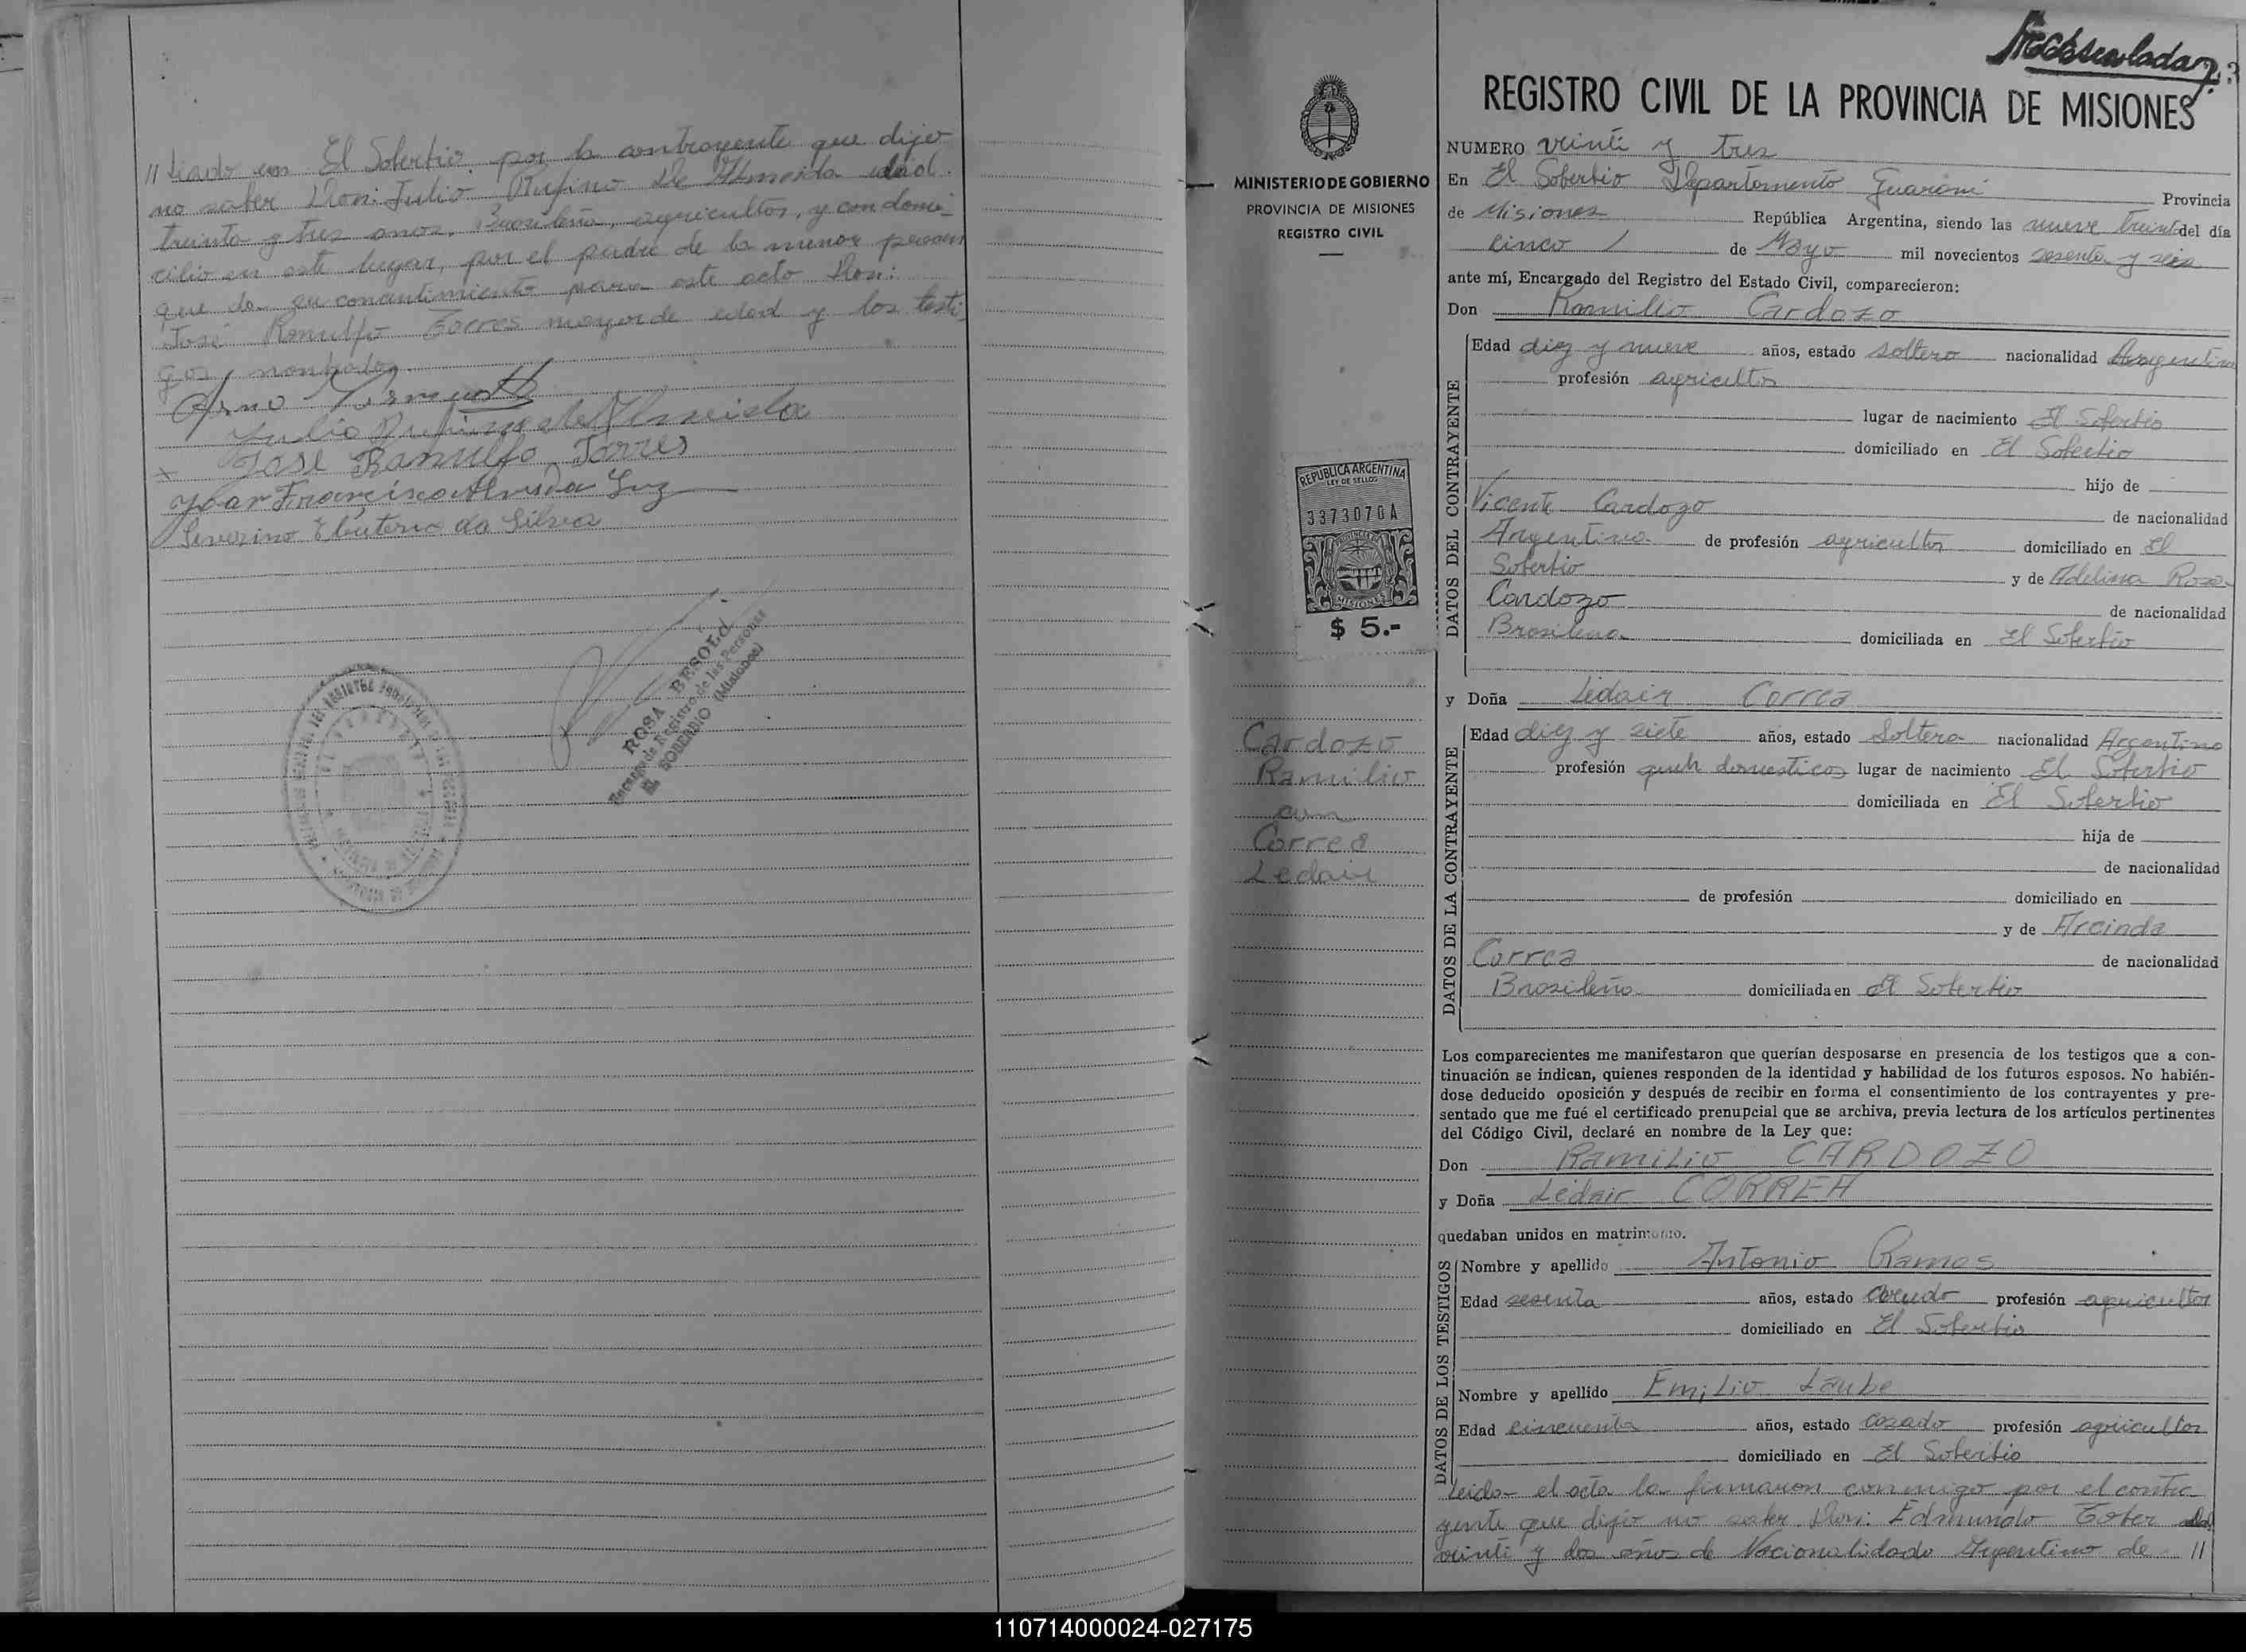 // liado en El Soberbio. por la contrayente que dijo
no saber Don: Julio Rufino De Almeida edad
treinta y tres anos, Brasileño, agricultor, y con domi-
cilio en este lugar, por el padre de la menor
que da su consentimiento para este acto Don:
José Ranulfo Torres mayor de edad y los testi-
gos nonbados.
Arno
Julio Rufino de Almeida
x José Ranulfo Torres
Francisco Almeida Luz
Severino Eleuterio da Silva
ROSA BESOLD
Encarg. de Registro de las Personas
EL SOBERBIO (Misiones)
3
REGISTRO CIVIL DE LA PROVINCIA DE MISIONES
MINISTERIO DE GOBIERNO
PROVINCIA DE MISIONES
REGISTRO CIVIL
REPUBLICA ARGENTINA
LEY DE SELLOS
3373070A
MISIONES
$ 5.-
Cardozo
Ramilio
con
Correa
Ledair
NUMERO veinti y tres
En El Soberbio Departamento Guarani Provincia
de Misiones República Argentina, siendo las nueve treinta del día
cinco / de Mayo mil novecientos sesenta y seis
ante mí, Encargado del Registro del Estado Civil, comparecieron:
Don Ramilio Cardozo
DATOS DEL CONTRAYENTE
Edad diez y nueve años, estado soltero nacionalidad Argentina
profesión agricultor
lugar de nacimiento El Soberbio
domiciliado en El Soberbio
hijo de
Vicente Cardozo de nacionalidad
Argentina de profesión agricultor domiciliado en El
Soberbio y de Adelina Rosa
Cardozo de nacionalidad
Brasilena domiciliada en El Soberbio
y Doña Ledair Correa
DATOS DE LA CONTRAYENTE
Edad diez y siete años, estado Soltera nacionalidad Argentina
profesión queh domesticos lugar de nacimiento El Soberbio
domiciliada en El Soberbio
hija de
de nacionalidad
de profesión domiciliado en
y de Arcinda
Correa de nacionalidad
Brasileña domiciliada en El Soberbio
Los comparecientes me manifestaron que querían desposarse en presencia de los testigos que a con-
tinuación se indican, quienes responden de la identidad y habilidad de los futuros esposos. No habién-
dose deducido oposición y después de recibir en forma el consentimiento de los contrayentes y pre-
sentado que me fué el certificado prenupcial que se archiva, previa lectura de los artículos pertinentes
del Código Civil, declaré en nombre de la Ley que:
Don Ramilio CARDOZO
y Doña Ledair CORREA
quedaban unidos en matrimonio.
DATOS DE LOS TESTIGOS
Nombre y apellido Antonio Ramos
Edad sesenta años, estado profesión agricultor
domiciliado en El Soberbio
Nombre y apellido Emilio Laube
Edad cincuenta años, estado casado profesión agricultor
domiciliado en El Soberbio
Leida el acta la firmaron conmigo por el contra-
yente que dijo no saber Don: Edmundo
veinti y dos años de Nacionalidade Argentino de //
110714000024-027175